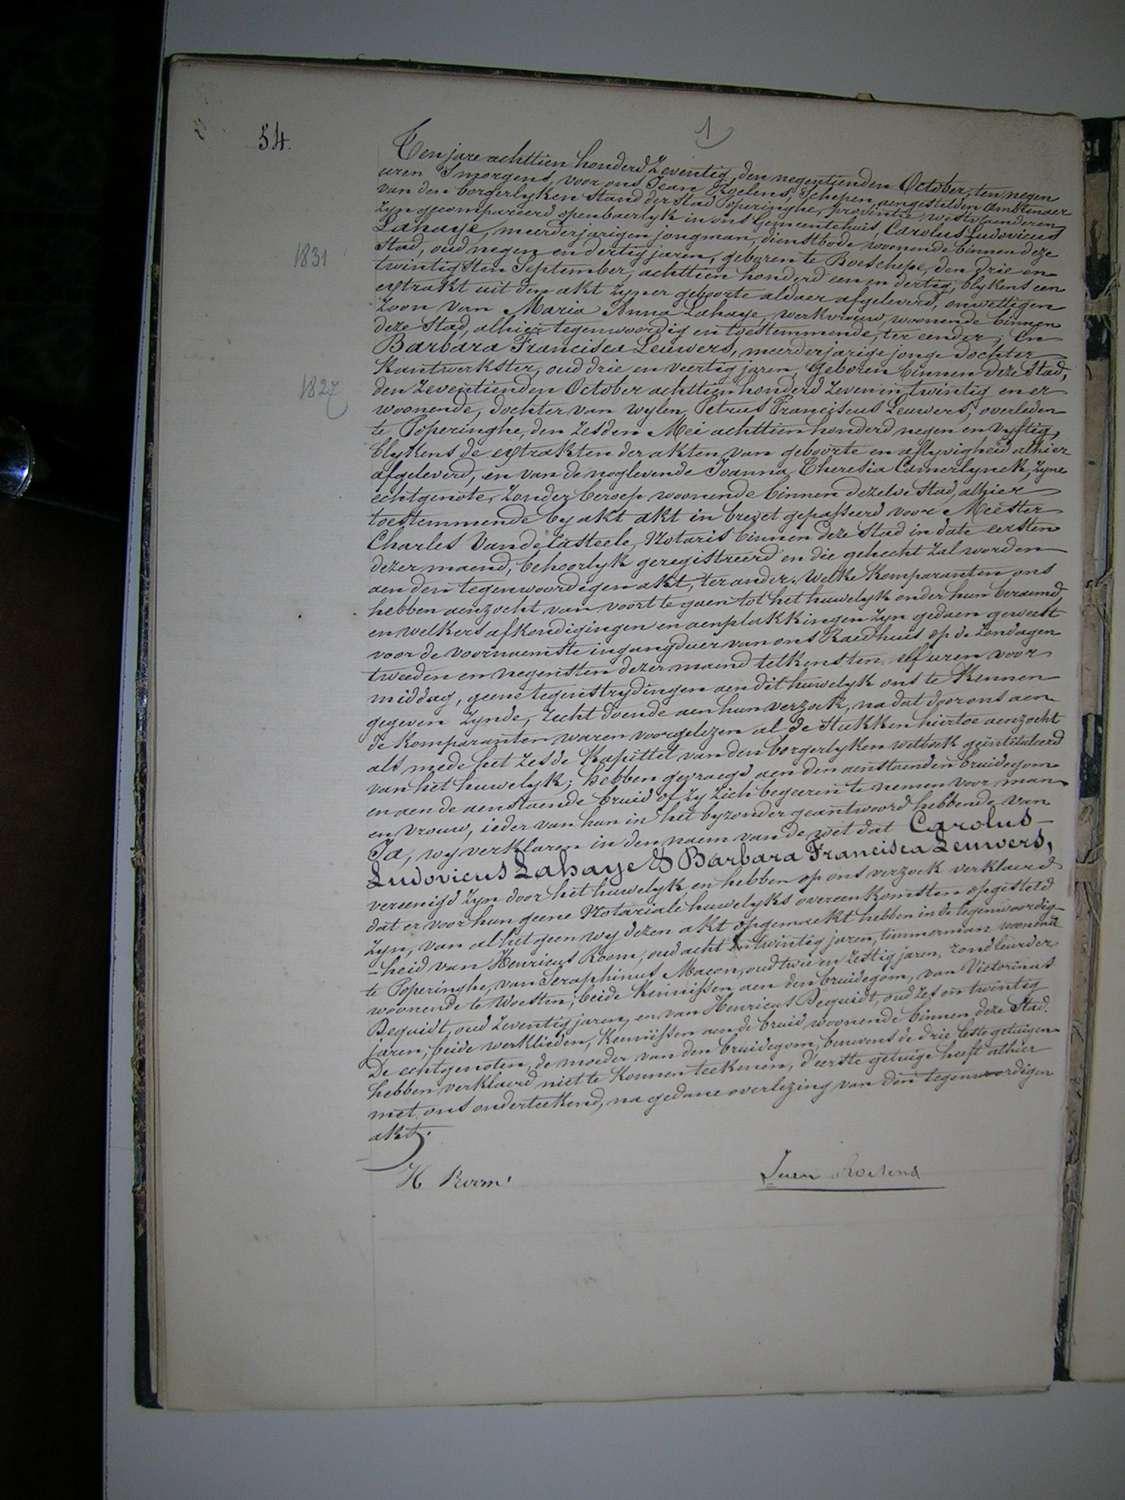 1
54.
Ten jare achttien honderd Zeventig, den negentienden October, ten negen
uren 's morgens, voor ons Jean Roelens, Schepen, aengestelden Ambtenaer
van den borgerlyken stand der stad Poperinghe, provintie westvlaenderen
zyn gecompareerd openbaerlyk in ons Gemeentehuis, Carolus Ludovicus
Lahaye, meerderjarigen jongman, dienstbode woonende binnen deze
1831
Stad, oud negen en dertig jaren, geboren te Boeschepe, den drie en
twintigsten September, achttien honderd een en dertig, blykens een
extrakt uit den akt zyner geboorte aldaer afgeleverd, onwettigen
zoon van Maria Anna Lahaye, werkvrouw, woonende binnen
deze Stad, alhier tegenwoordig en toestemmende, ter eender, En
Barbara Francisca Leuwers, meerderjarige jonge dochter
Kantwerkster, oud drie en veertig jaren, Geboren binnen deze Stad,
1827
den Zeventienden October achttien honderd Zeven en twintig en er
woonende, dochter van wylen, Petrus Franciscus Leuwers, overleden
te Poperinghe, den zesden Mei achttien honderd negen en vyftig,
blykens de extrakten der akten van geboorte en aflyvigheid alhier
afgeleverd, en van de nog levende Joanna Theresia Camerlynck, zyne
echtgenote, Zonder beroep woonende binnen dezelve Stad, alhier
toestemmende by akt akt in brevet gepasseerd voor Meester
Charles Vande Casteele, Notaris binnen deze Stad in date eersten
dezer maend, behoorlyk geregistreerd en die gehecht zal worden
aen den tegenwoordigen akt, ter ander. Welke komparanten ons
hebben aenzocht van voort te gaen tot het huwelyk onder hun beraemd
en welkers afkondigingen en aenplakkingen zyn gedaen geweest
voor de voornaemste ingangdeur van ons Raedhuis op de Zondagen
tweeden en negensten dezer maend telkensten elf uren voor
middag, geene tegenstrydingen aen dit huwelyk ons te kennen
gegeven zynde, recht doende aen hun verzoek, na dat door ons aen
de komparanten waren voorgelezen al de stukken hiertoe aenzocht
als mede het zesde kapittel van den borgerlyken wetboek geïntituleerd
van het huwelyk; hebben gevraegd aen den aenstaenden bruidegom
en aen de aenstaende bruid of zy zich begeeren te nemen voor man
en vrouw, ieder van hun in het byzonder geantwoord hebbende van
Ja, wy verklaren in den naem van de wet dat Carolus
Ludovicus Lahaye & Barbara Francisca Leuwers,
vereenigd zyn door het huwelyk, en hebben op ons verzoek verklaerd
dat er voor hun geene Notariale huwelyks overeenkomsten opgesteld
zyn, van al het geen wy dezen akt opgemaekt hebben in de tegenwoordig-
heid van Henricus Room, oud acht en twintig jaren, timmerman woonende
te Poperinghe, van Seraphinus Macon, oud twee en zestig jaren, rondleurder
woonende te Woesten, beide kennissen aen den bruidegom, van Victorinus
Bequidt, oud zeventig jaren, en van Henricus Bequidt, oud zes en twintig
jaren, beide werklieden, kennissen aen de bruid, woonende binnen deze Stad.
De echtgenoten, de moeder van den bruidegom, benevens de drie leste getuigen
hebben verklaerd niet te konnen teekenen, d'eerste getuige heeft alhier
met ons onderteekend, na gedane overlezing van den tegenwoordigen
akt.
H Room Jean Roelens